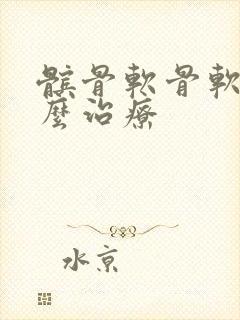 髌骨軟骨軟
麼治療
水京